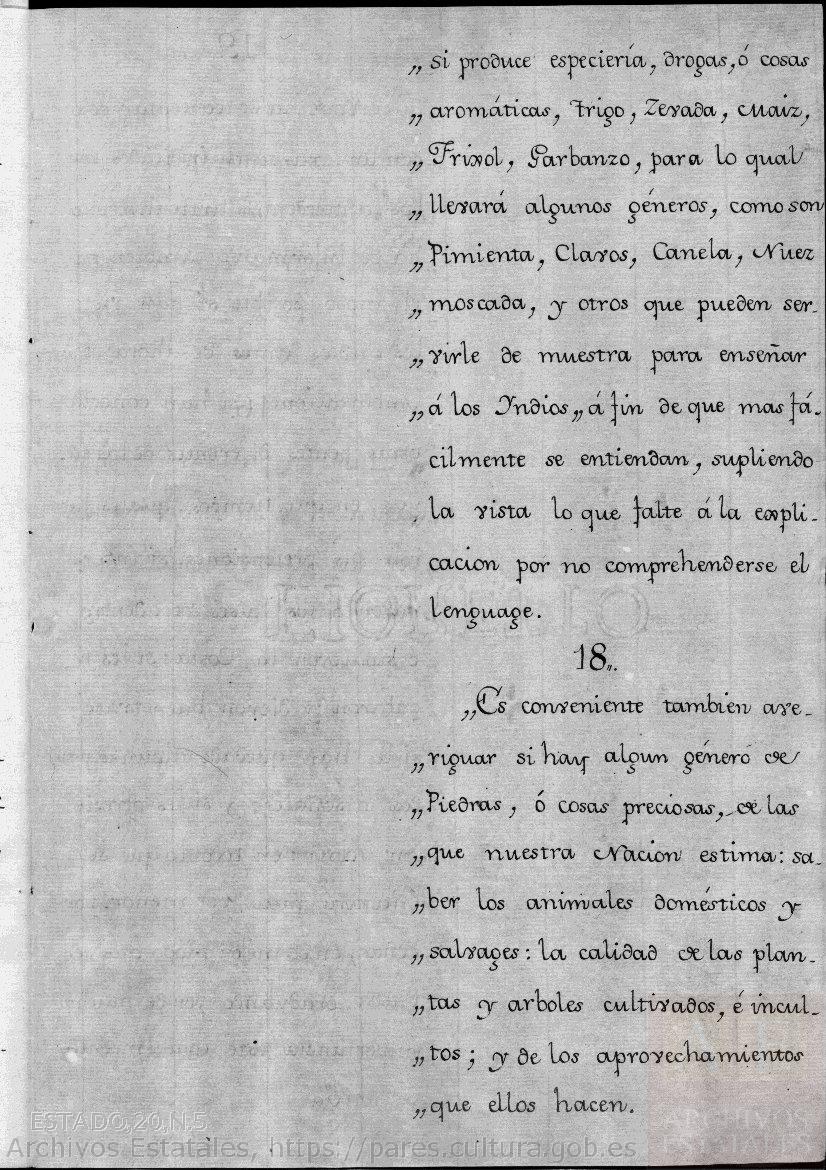 „si produce especiería, drogas, ó cosas
„aromáticas, trigo, Zevada, Maiz,
„Frixol, Garbanzo, para lo qual
„llevará algunos géneros, como son
„Pimienta, Clavos, Canela, Nuez
„moscada, y otros que pueden ser-
„virle de muestra para enseñar
„á los Yndios„ á fin de que mas fá-
cilmente se entiendan, supliendo
la vista lo que falte á la expli-
cacion por no comprehenderse el
lenguage.
18„.
„Es conveniente tambien ave-
„riguar si hay algun género de
„Piedras, ó cosas preciosas, de las
„que nuestra Nacion estima: sa-
„ber los animales domésticos y
„salvages: la calidad de las plan-
„tas y arboles cultivados, é incul-
„tos; y de los aprovechamientos
„que ellos hacen.
ESTADO,20,N.5
Archivos Estatales, https://pares.cultura.gob.es
ARCHIVOS
ESTATALES